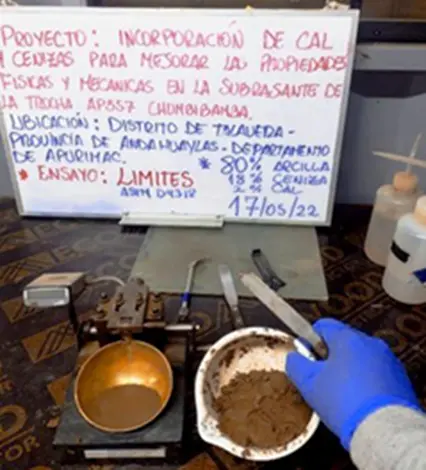 PROYECTO: INCORPORACIÓN DE CAL
Y CENIZAS PARA MEJORAR LA PROPIEDADES
FISICAS Y MECANICAS EN LA SUBRASANTE DE
LA TROCHA AP557 CHUMBIBAMBA.
UBICACIÓN: DISTRITO DE TALAVERA-
PROVINCIA DE ANDAHUAYLAS-DEPARTAMENTO
DE APURIMAC.
* 80% ARCILLA
18% CENIZA
2% CAL
* ENSAYO: LIMITES
ASTM D4318
17/05/22